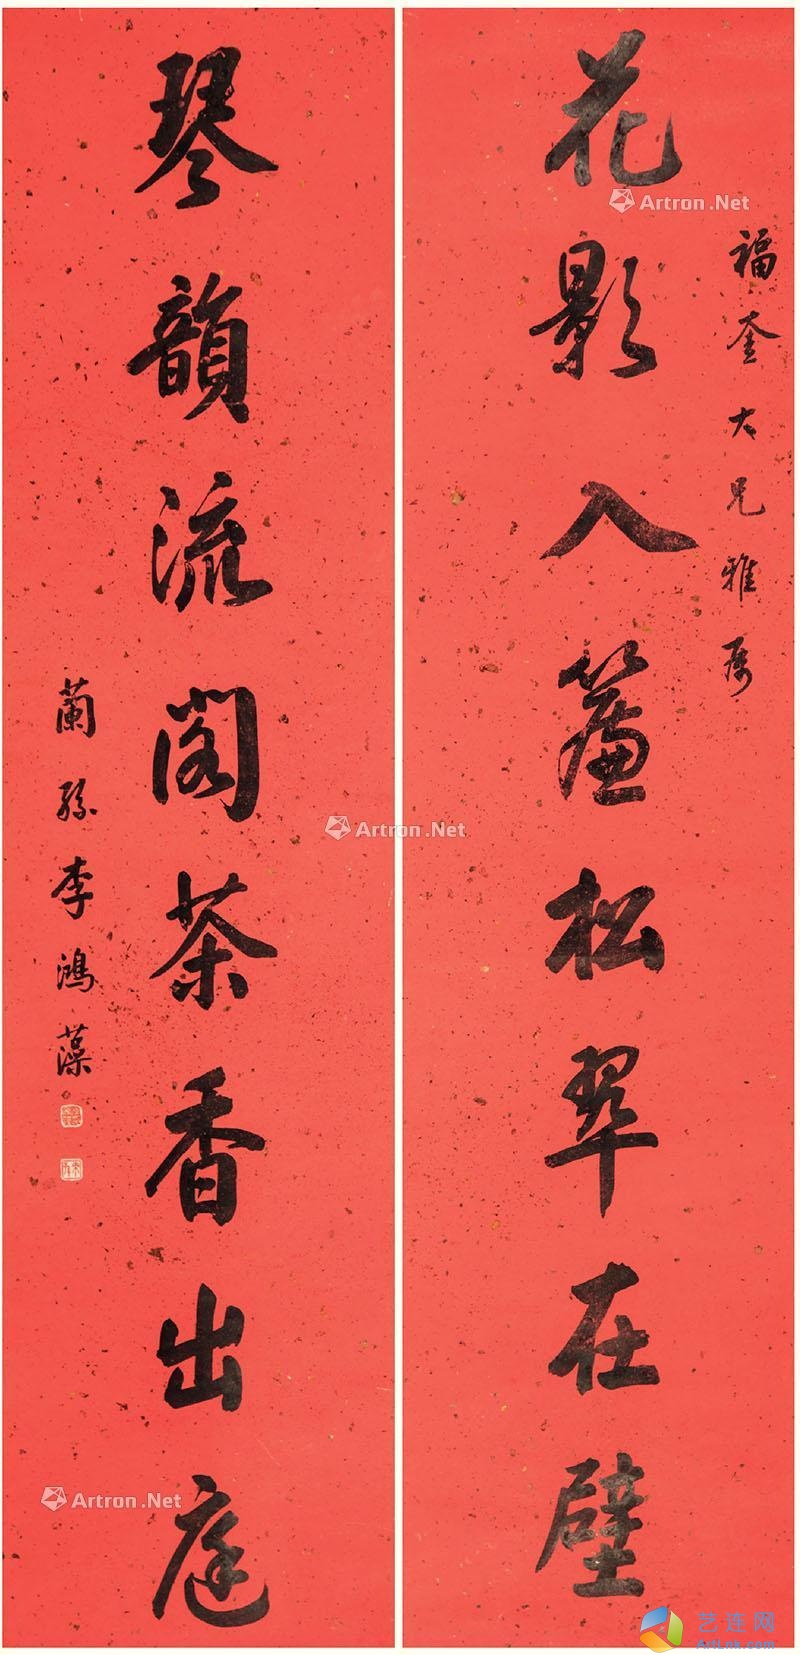 福奎大兄雅属
花影入簾松翠在壁
琴韻流閣茶香出庭
蘭孫李鴻藻
Artron.Net
Artron.Net
Artron.Net
艺连网
ArtLnk.com